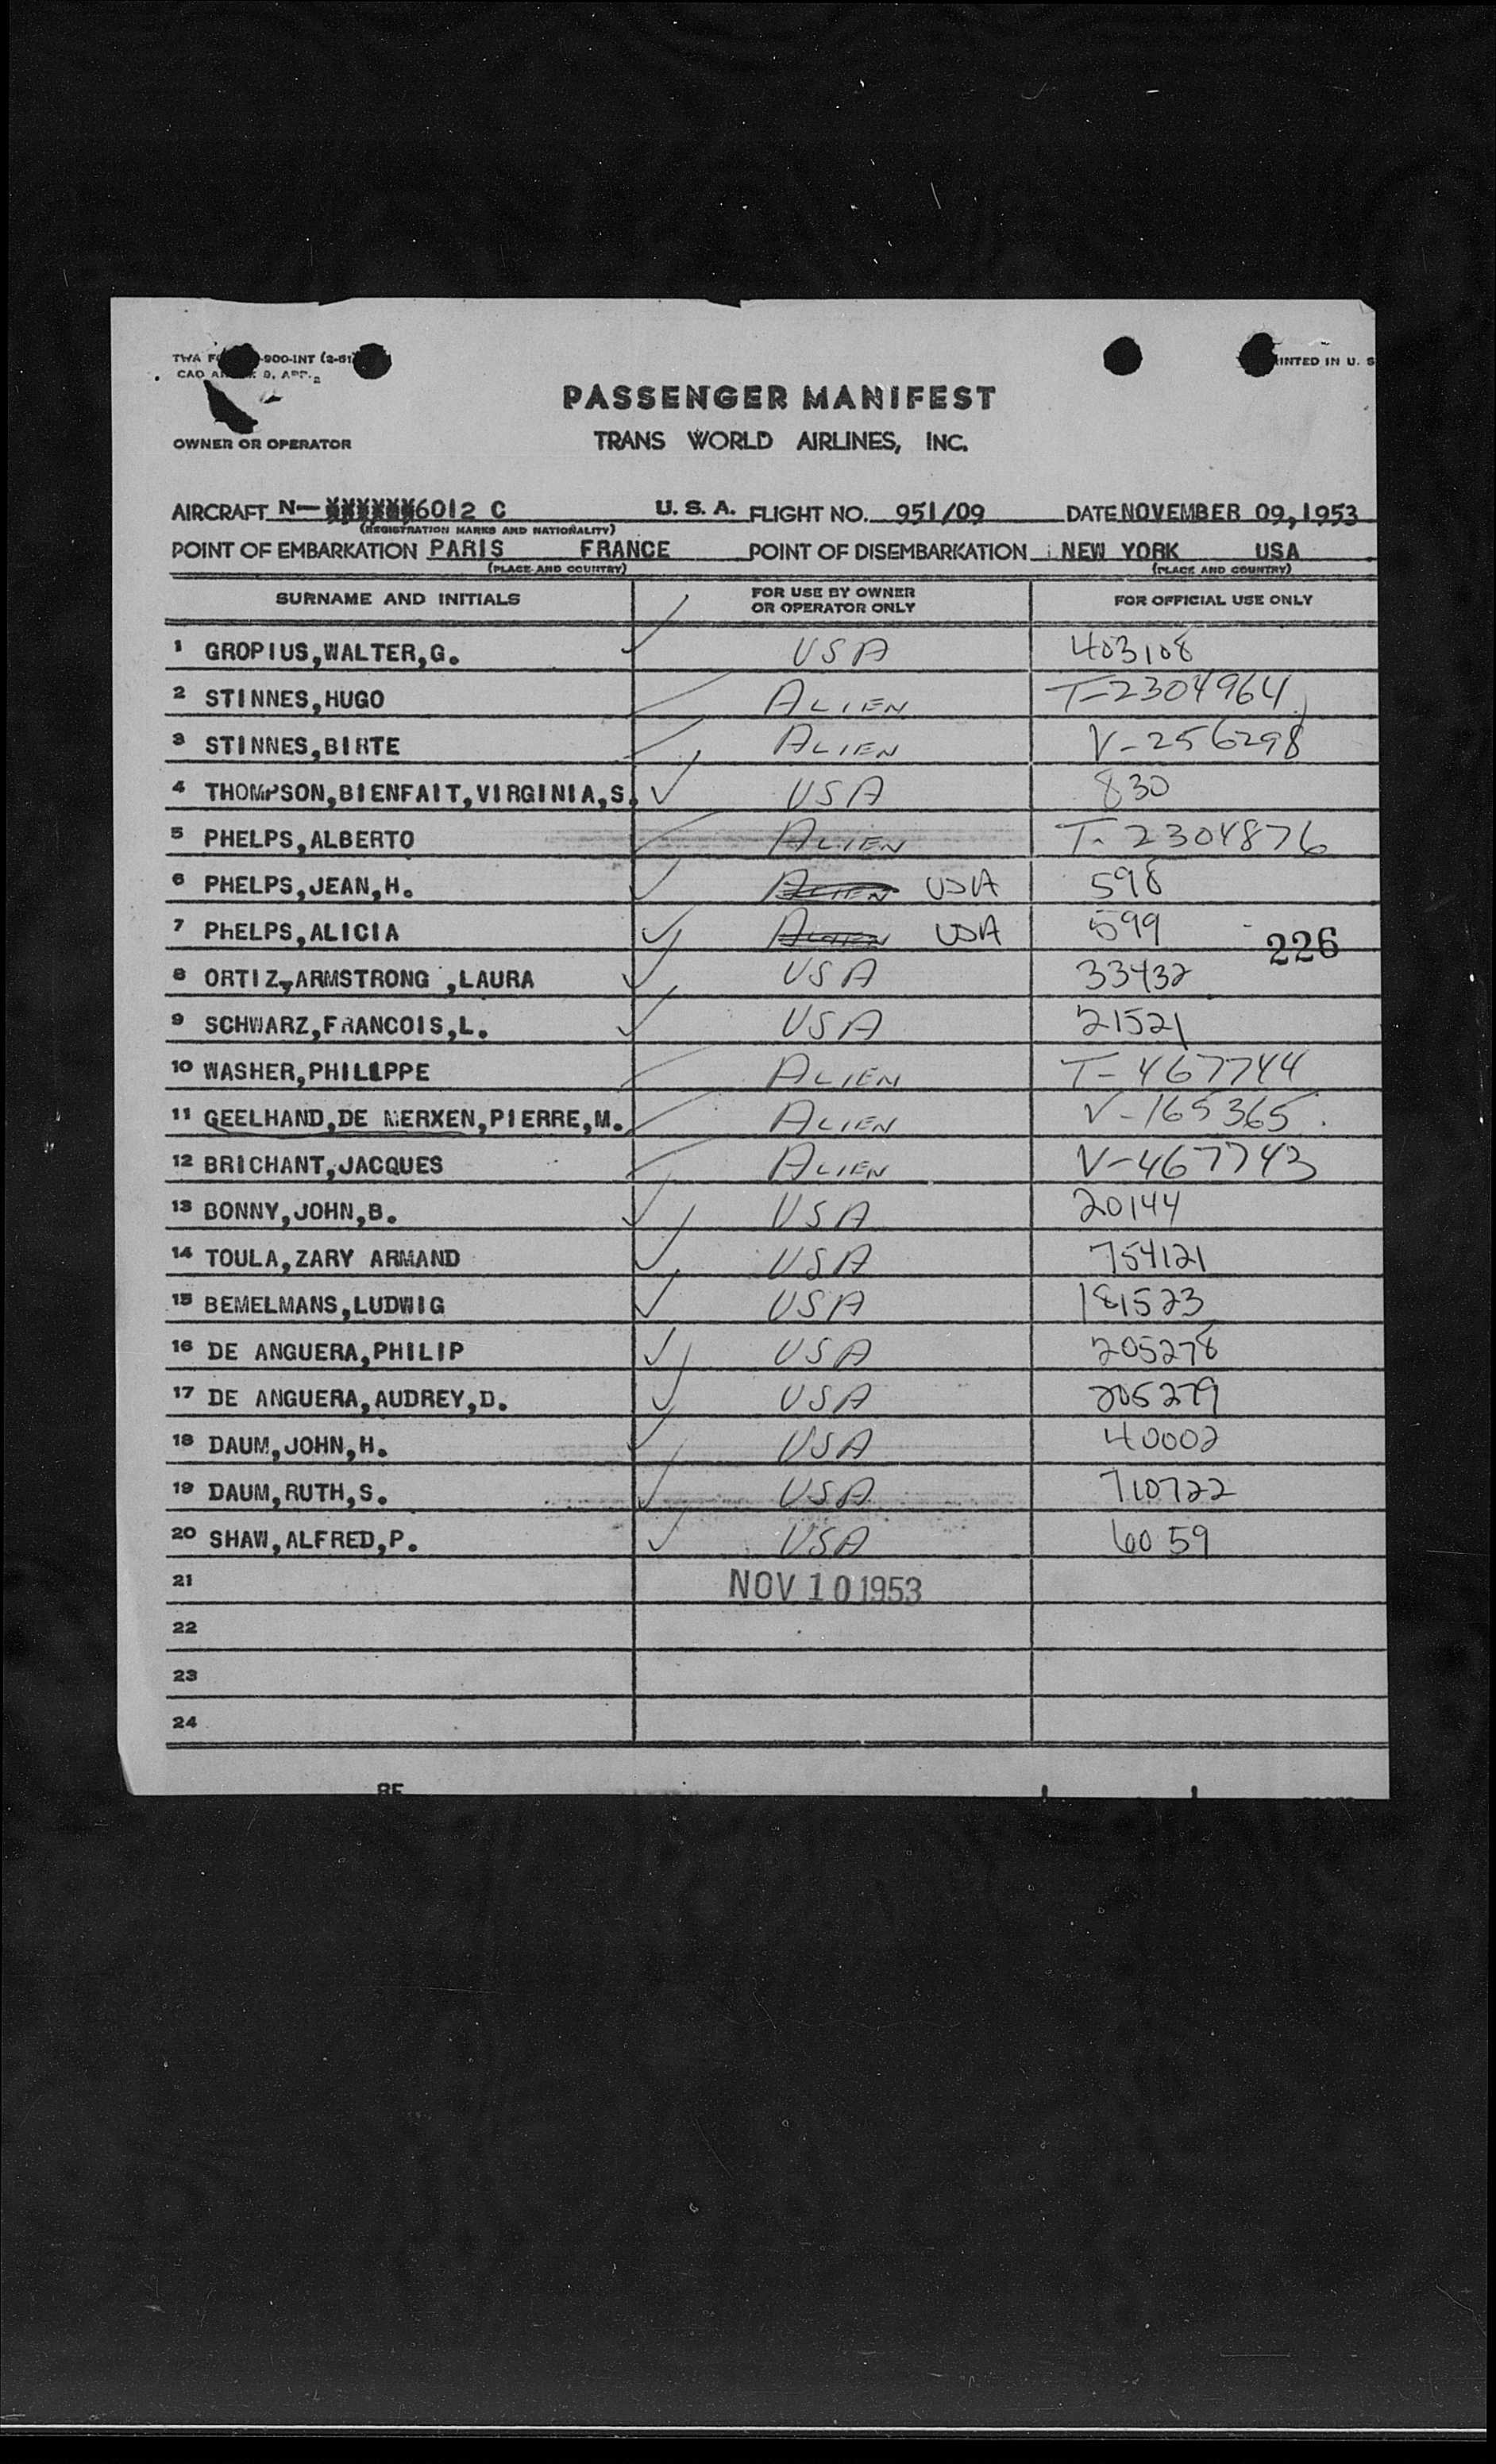 TWA F -900-INT (2-51)
INTED IN U. S
CAO A 9, APP. 2
PASSENGER MANIFEST
OWNER OR OPERATOR
TRANS WORLD AIRLINES, INC.
AIRCRAFT N- 6012 C U. S. A. FLIGHT NO. 951/09 DATE NOVEMBER 09, 1953
(REGISTRATION MARKS AND NATIONALITY)
POINT OF EMBARKATION PARIS FRANCE POINT OF DISEMBARKATION NEW YORK USA
(PLACE AND COUNTRY) (PLACE AND COUNTRY)
SURNAME AND INITIALS FOR USE BY OWNER OR OPERATOR ONLY FOR OFFICIAL USE ONLY
1 GROPIUS,WALTER,G. USA 403108
2 STINNES,HUGO ALIEN T-2304964
3 STINNES,BIRTE ALIEN V-256298
4 THOMPSON,BIENFAIT,VIRGINIA,S. USA 830
5 PHELPS,ALBERTO ALIEN T-2304876
6 PHELPS,JEAN,H. ALIEN USA 598
7 PHELPS,ALICIA ALIEN USA 599
226
8 ORTIZ,ARMSTRONG ,LAURA USA 33432
9 SCHWARZ,FRANCOIS,L. USA 21521
10 WASHER,PHILIPPE ALIEN T-467744
11 GEELHAND,DE MERXEN,PIERRE,M. ALIEN V-165365.
12 BRICHANT,JACQUES ALIEN V-467743
13 BONNY,JOHN,B. USA 20144
14 TOULA,ZARY ARMAND USA 754121
15 BEMELMANS,LUDWIG USA 181523
16 DE ANGUERA,PHILIP USA 205278
17 DE ANGUERA,AUDREY,D. USA 205279
18 DAUM,JOHN,H. USA 40002
19 DAUM,RUTH,S. USA 710722
20 SHAW,ALFRED,P. USA 6059
21 NOV 10 1953
22
23
24